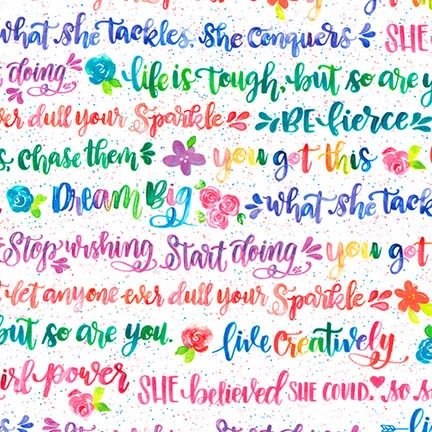 what she tackles, she conquers SHE
doing life is tough, but so are y
er dull your Sparkle BE fierce
s, chase them you got this
Dream Big what she tack
Stop wishing Start doing you got
t let anyone ever dull your Sparkle
but so are you. live creatively
irl power SHE believed SHE COULD, so s
li